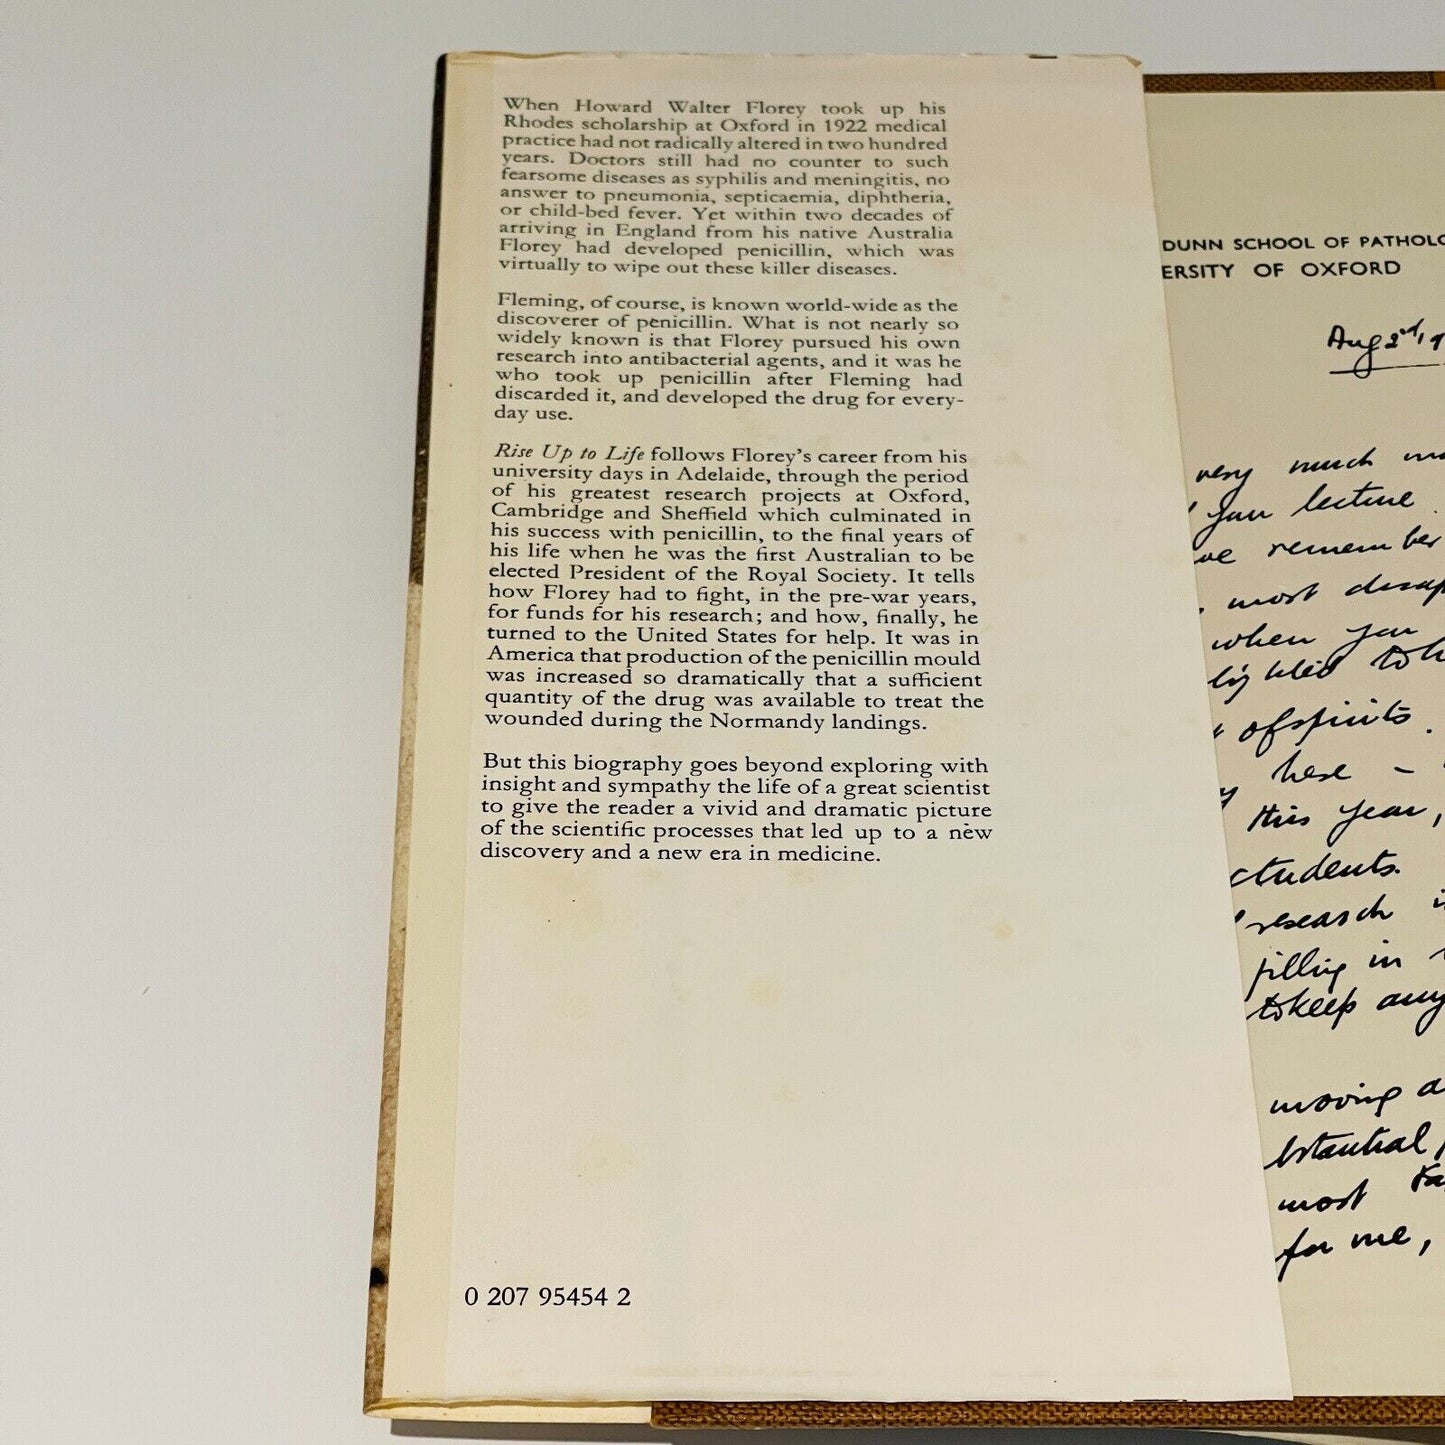 When Howard Walter Florey took up his
Rhodes scholarship at Oxford in 1922 medical
practice had not radically altered in two hundred
years. Doctors still had no counter to such
fearsome diseases as syphilis and meningitis, no
answer to pneumonia, septicaemia, diphtheria,
or child-bed fever. Yet within two decades of
arriving in England from his native Australia
Florey had developed penicillin, which was
virtually to wipe out these killer diseases.
Fleming, of course, is known world-wide as the
discoverer of penicillin. What is not nearly so
widely known is that Florey pursued his own
research into antibacterial agents, and it was he
who took up penicillin after Fleming had
discarded it, and developed the drug for every-
day use.
Rise Up to Life follows Florey's career from his
university days in Adelaide, through the period
of his greatest research projects at Oxford,
Cambridge and Sheffield which culminated in
his success with penicillin, to the final years of
his life when he was the first Australian to be
elected President of the Royal Society. It tells
how Florey had to fight, in the pre-war years,
for funds for his research; and how, finally, he
turned to the United States for help. It was in
America that production of the penicillin mould
was increased so dramatically that a sufficient
quantity of the drug was available to treat the
wounded during the Normandy landings.
But this biography goes beyond exploring with
insight and sympathy the life of a great scientist
to give the reader a vivid and dramatic picture
of the scientific processes that led up to a new
discovery and a new era in medicine.
0 207 95454 2
DUNN SCHOOL OF PATHOLO
ERSITY OF OXFORD
Aug 2nd, 19
very much
your lecture
remember
most
when you
of spirits.
here –
this year,
students.
research
filling in
to keep any
moving a
most
for me,